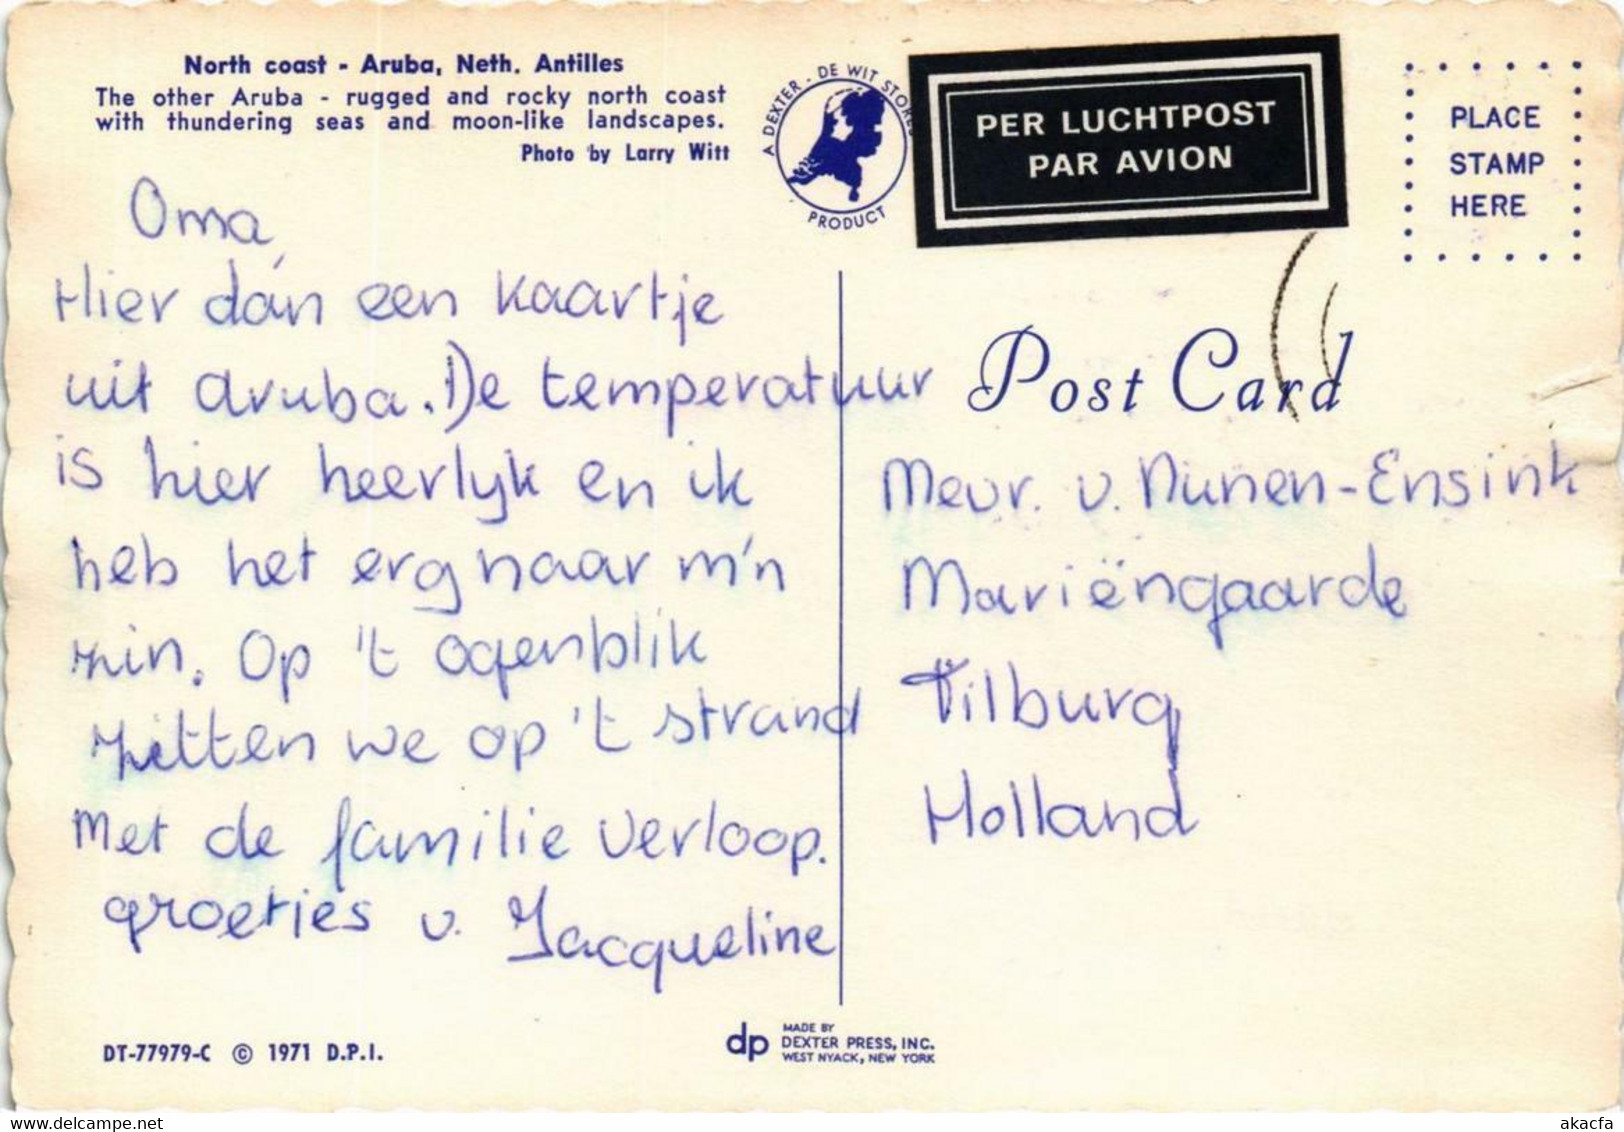 North coast - Aruba, Neth. Antilles
The other Aruba - rugged and rocky north coast
with thundering seas and moon-like landscapes.
Photo by Larry Witt
A DEXTER - DE WIT STORES
PRODUCT
PER LUCHTPOST
PAR AVION
PLACE
STAMP
HERE
Oma,
Hier dán een kaartje
uit Aruba. De temperatuur
is hier heerlyk en ik
heb het erg naar m'n
zin. Op 't ogenblik
zitten we op 't strand
Met de familie Verloop.
groetjes v. Jacqueline
Post Card
Mevr. v. Nunen-Ensink
Mariëngaarde
Tilburg
Holland
DT-77979-C © 1971 D.P.I.
dp MADE BY
DEXTER PRESS, INC.
WEST NYACK, NEW YORK
delcampe.net
akacfa